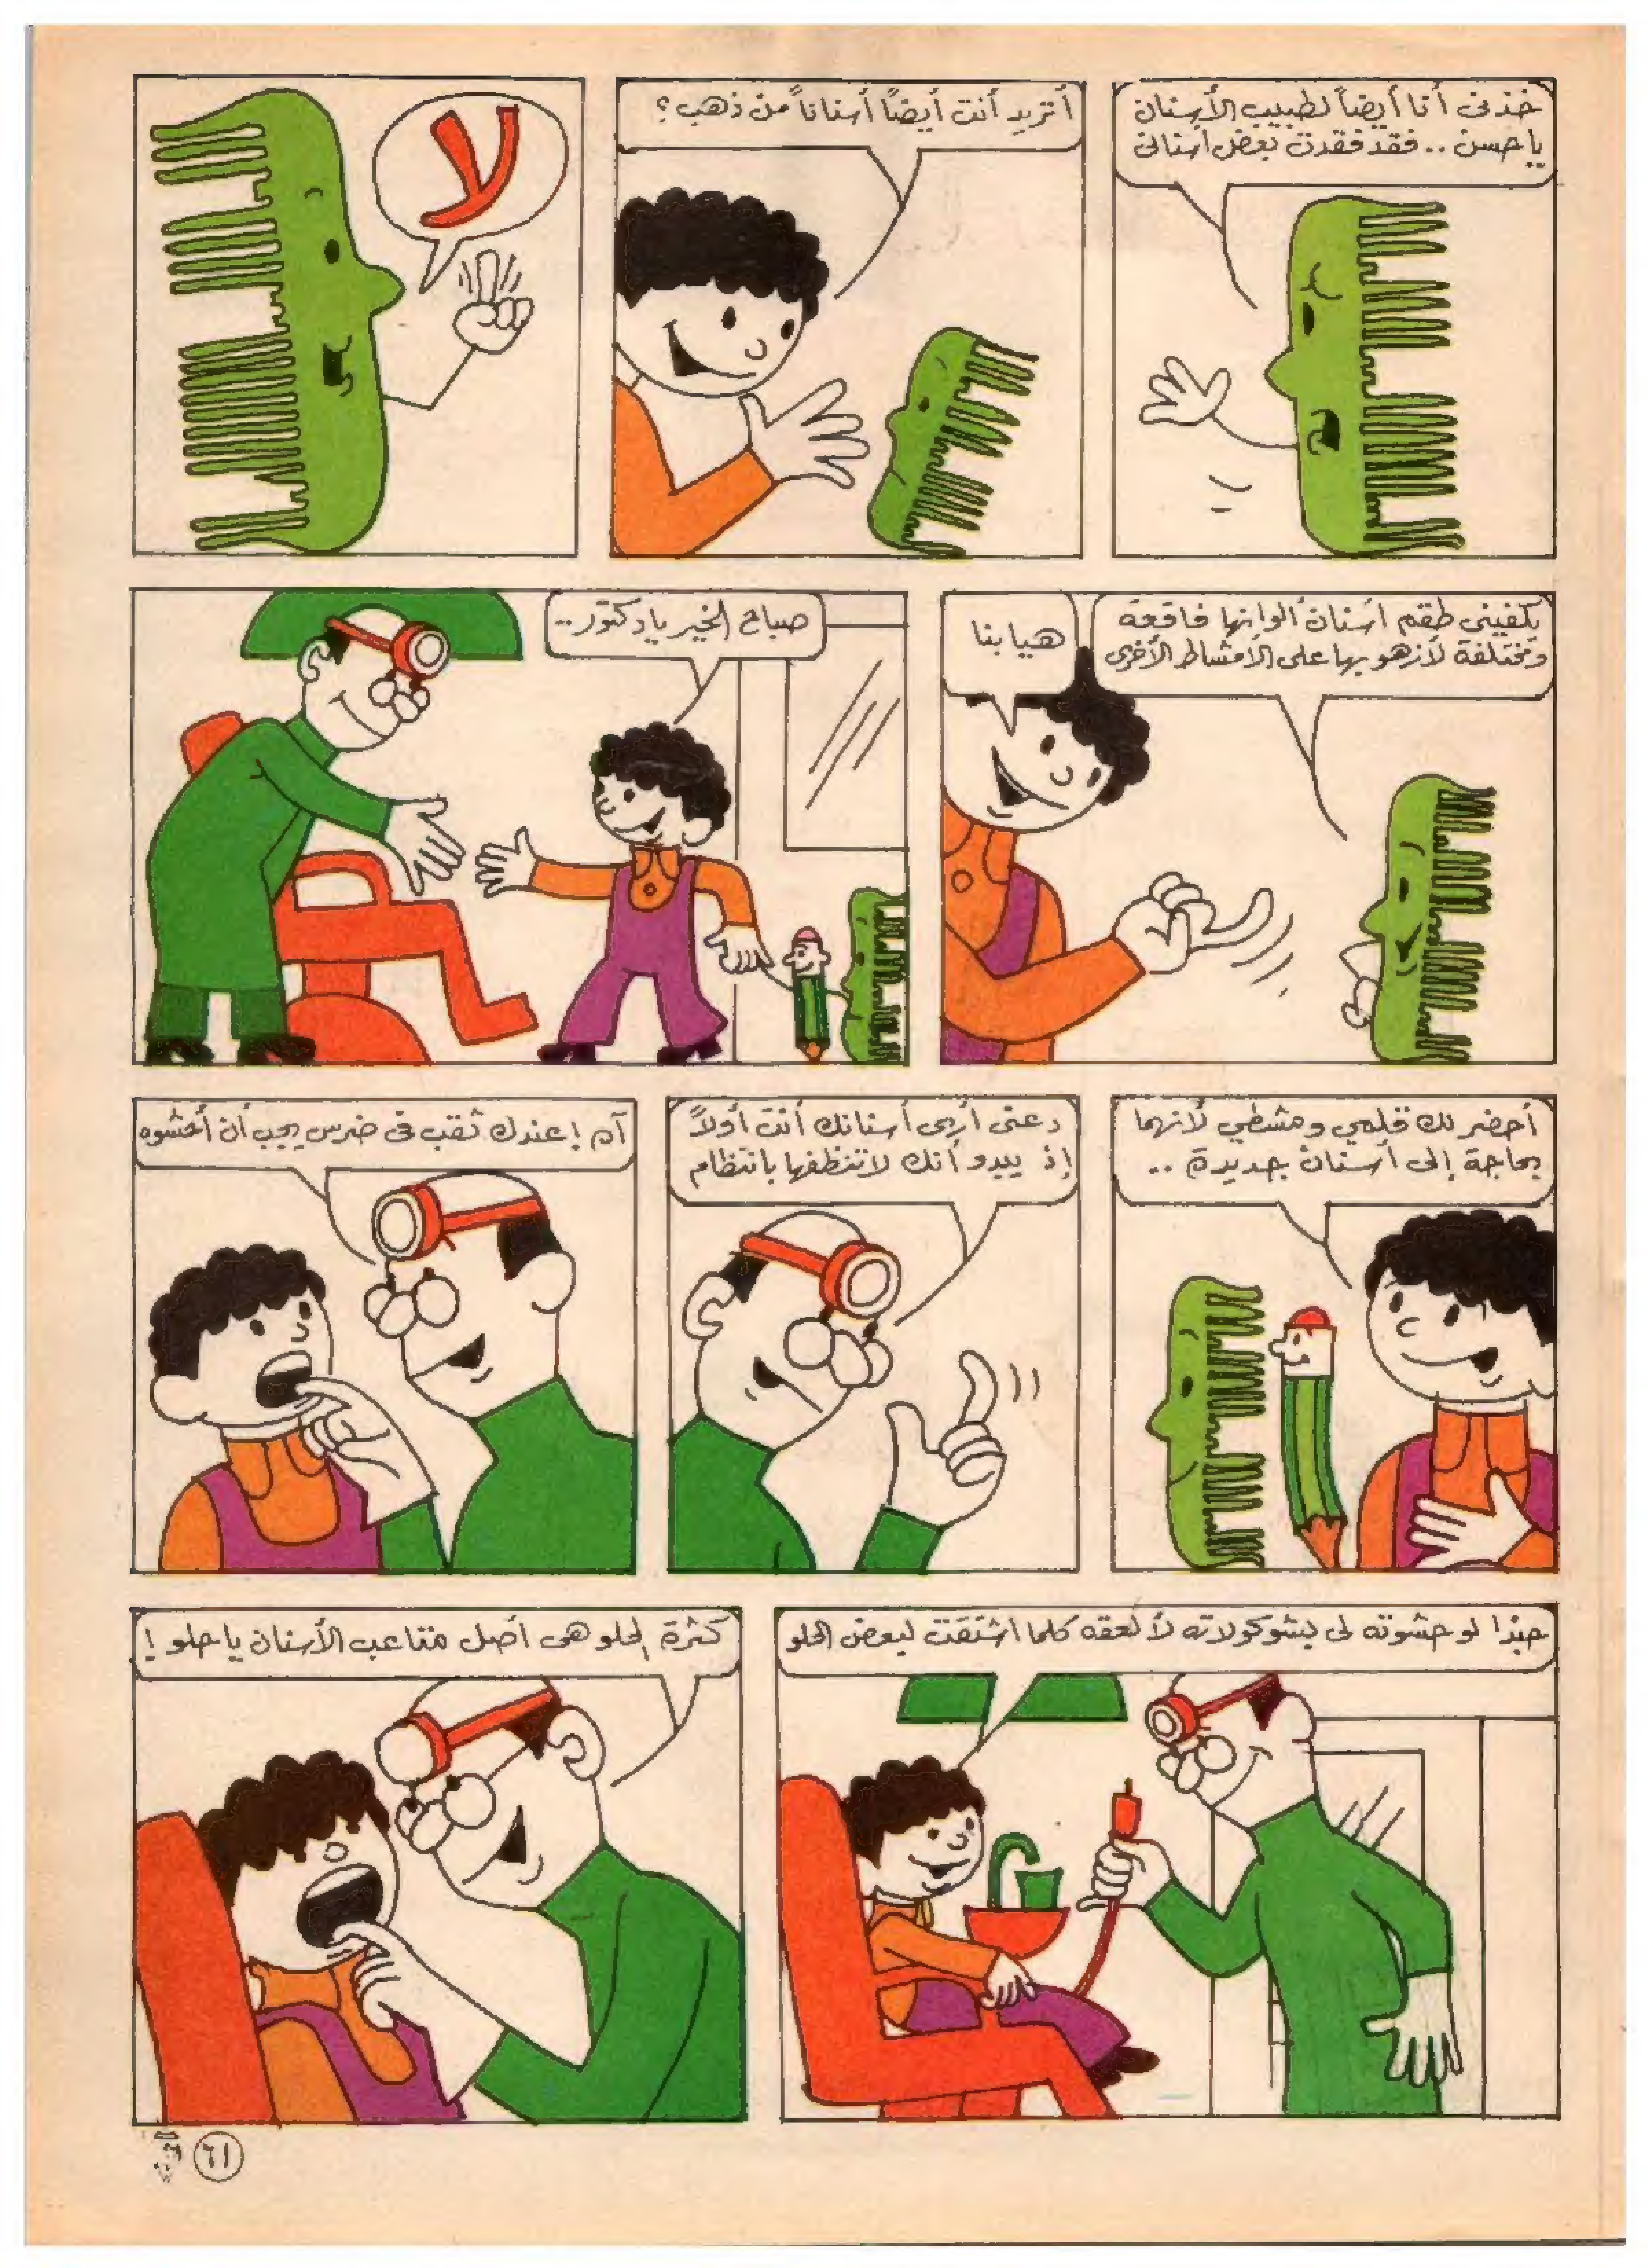 خذني أنا أيضاً لطبيب الأسنان
يا حسن .. فقد فقدت بعض أسناني
أتريد أنت أيضًا أسناناً من ذهب؟
لا
يكفيني طقم أسنان ألوانها فاقعة
ومختلفة لأزهو بها على الأمشاط الأخرى
هيا بنا
صباح الخير يا دكتور ..
أحضر لك قلمي ومشطي لأنهما
بحاجة إلى أسنان جديدة ..
دعني أرى أسنانك أنت أولاً
إذ يبدو أنك لا تنظفها بانتظام
آه ! عندك ثقب في ضرس يجب أن أحشوه
حبذا لو حشوته لي بشوكولاته لألعقه كلما اشتقت لبعض الحلو
كثرة الحلو هي أصل متاعب الأسنان يا حلو !
٦١